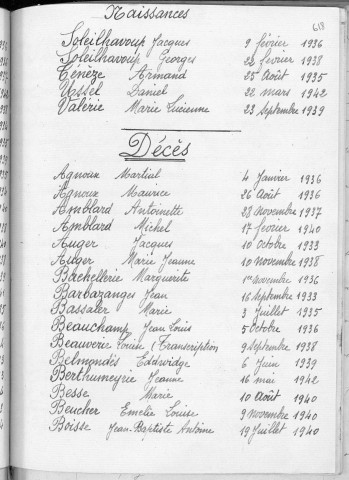 Naissances
618
Soleilhavoup Jacques 9 février 1936
Soleilhavoup Georges 28 février 1938
Ténèze Armand 25 Août 1935
Vassel Daniel 22 mars 1942
Valérie Marie Lucienne 23 Septembre 1939
Décès
Agnoux Martial 4 Janvier 1936
Agnoux Maurice 26 Août 1936
Amblard Antoinette 28 novembre 1937
Amblard Michel 17 février 1940
Auger Jacques 10 Octobre 1933
Auger Marie Jeanne 10 novembre 1938
Bachellerie Marguerite 1er novembre 1936
Barbaranges Jean 16 Septembre 1933
Bassaler Marie 3 Juillet 1935
Beauchamp Jean Louis 5 Octobre 1936
Beauverie Louise (Transcription 9 Septembre 1938
Belmondès Eddwidge 6 Juin 1939
Berthumeyrie Jeanne 16 mai 1942
Besse Marie 10 Août 1940
Beucher Emélie Louise 9 novembre 1940
Boisse Jean-Baptiste Antoine 19 Juillet 1940